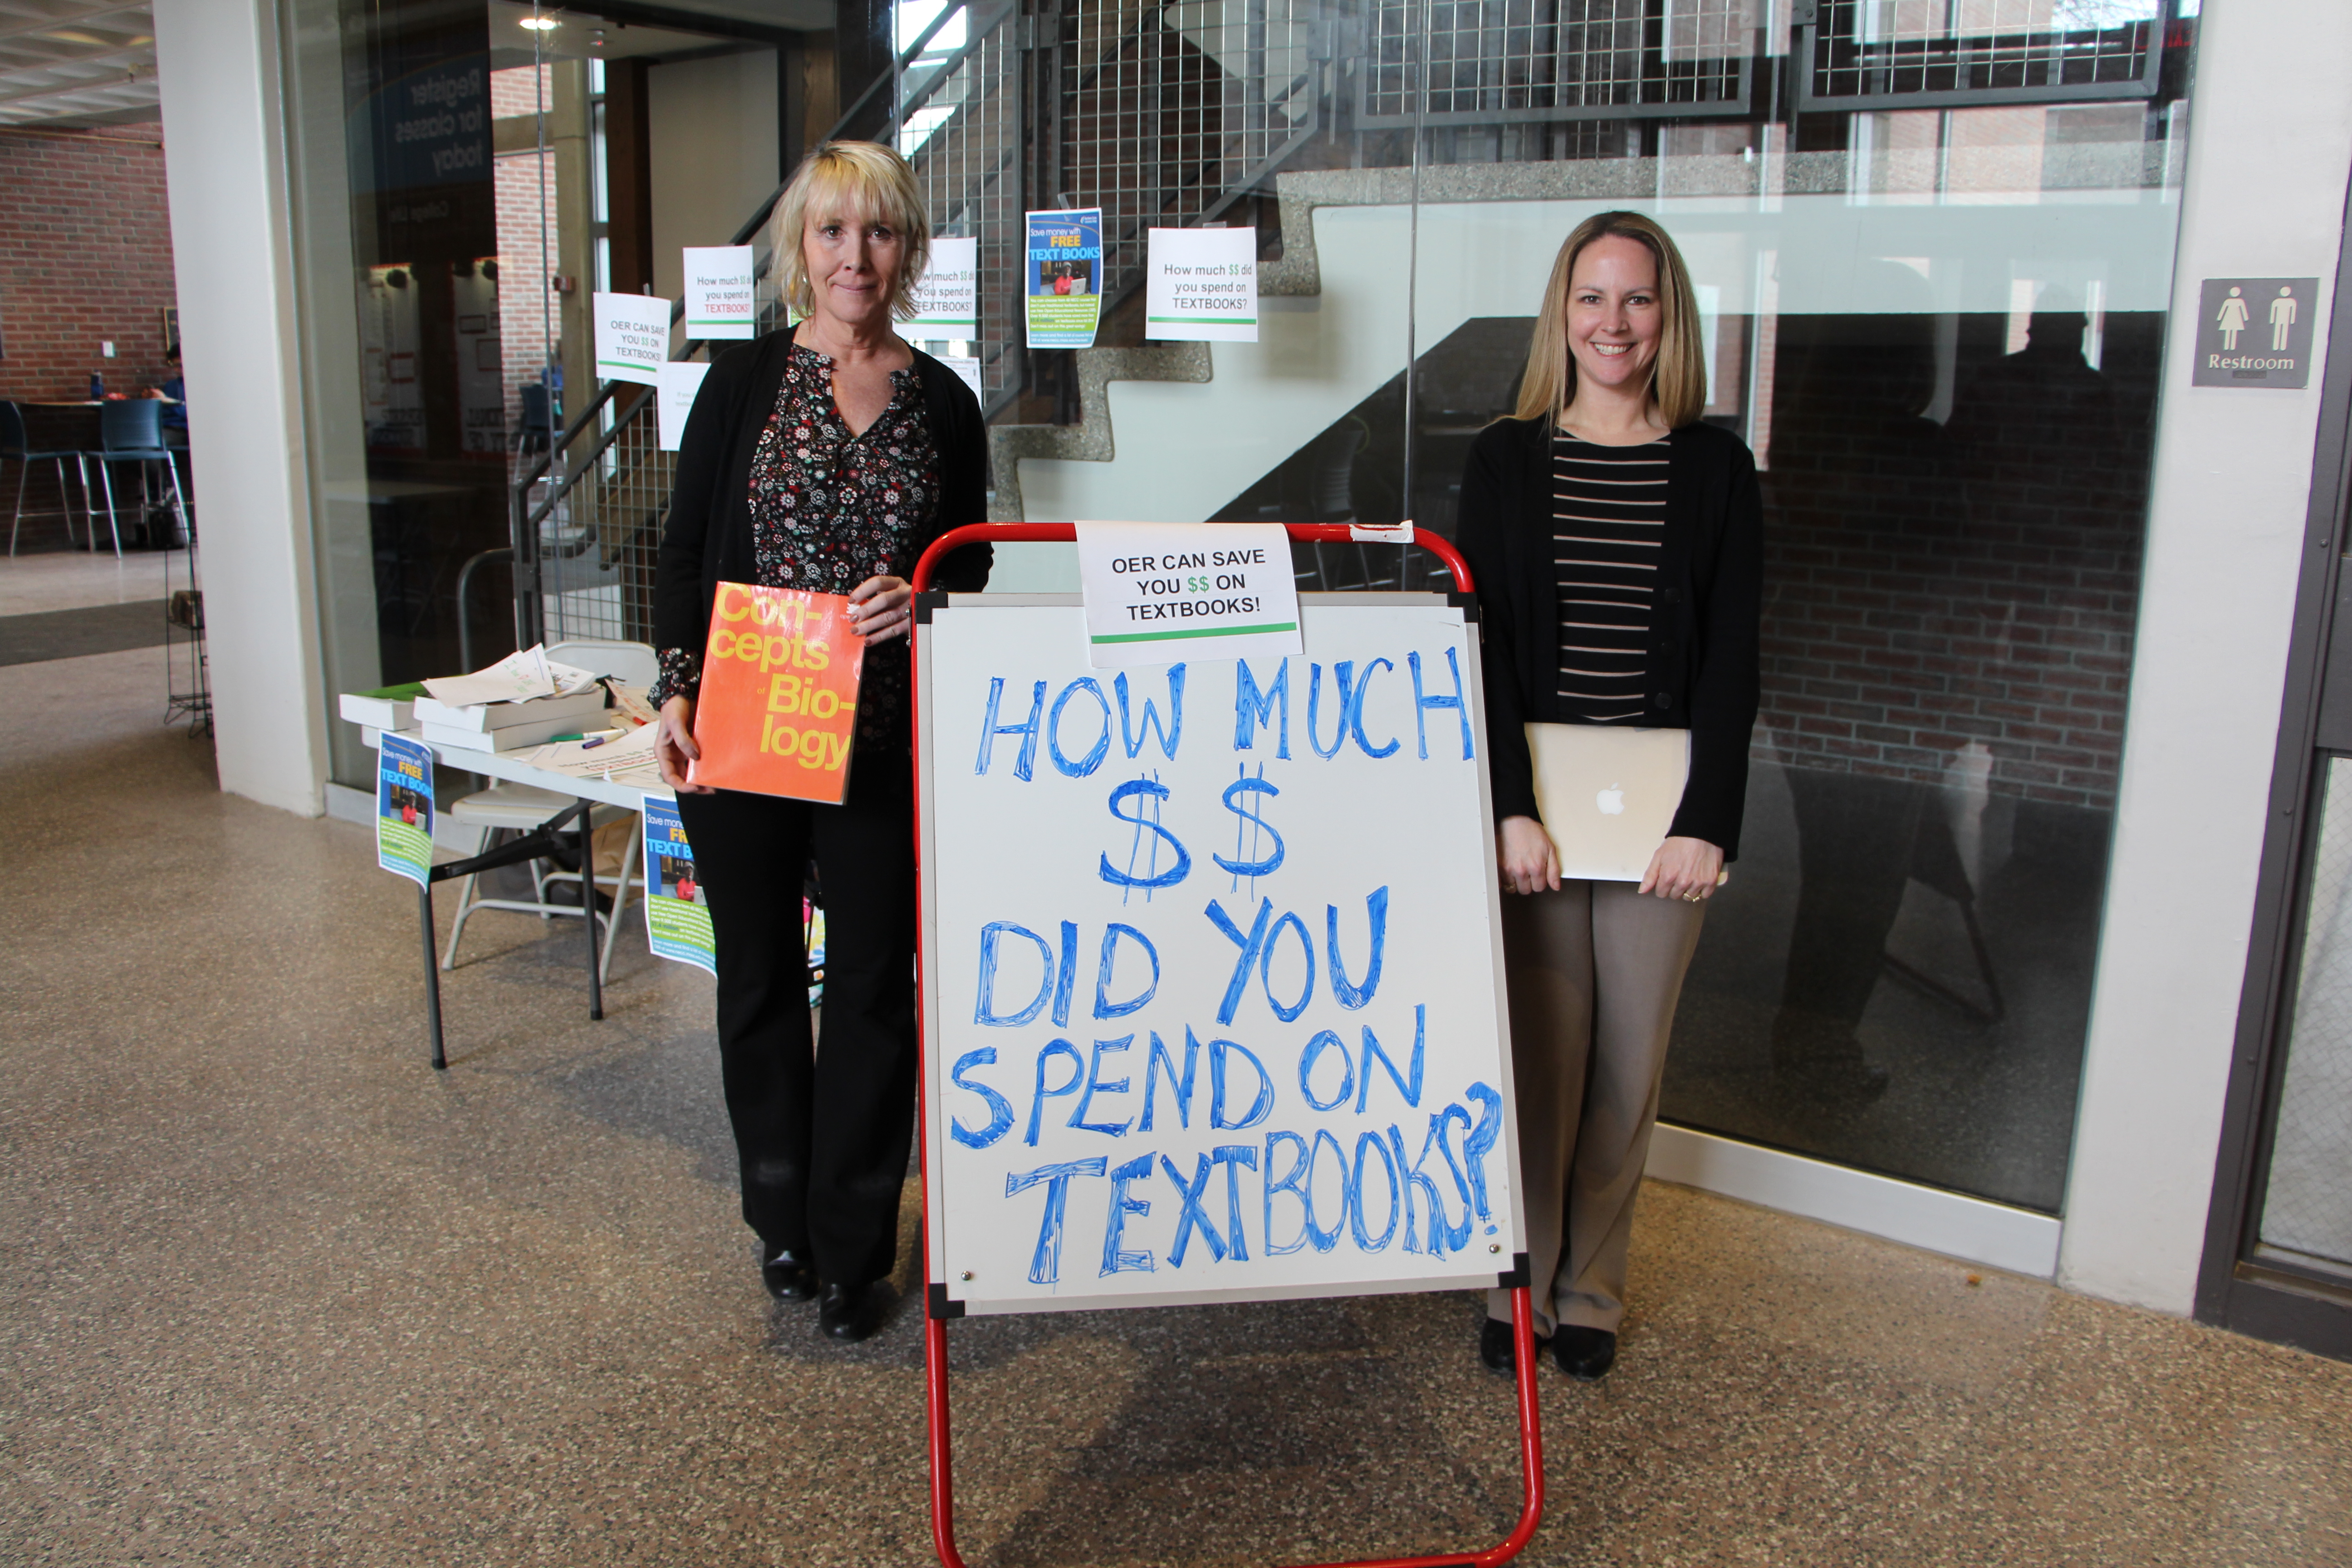 Register
for classes
today
College Life
OER CAN SAVE
YOU $$ ON
TEXTBOOKS!
How much $$ did
you spend on
TEXTBOOKS?
much $$ did
you spend on
TEXTBOOKS?
Save money with
FREE
TEXT BOOKS
How much $$ did
you spend on
TEXTBOOKS?
Restroom
Con-
cepts
of Bio-
logy
OER CAN SAVE
YOU $$ ON
TEXTBOOKS!
HOW MUCH
$ $
DID YOU
SPEND ON
TEXTBOOKS?
Save money with
FREE
TEXT BOOK
Save money
FR
TEXT B